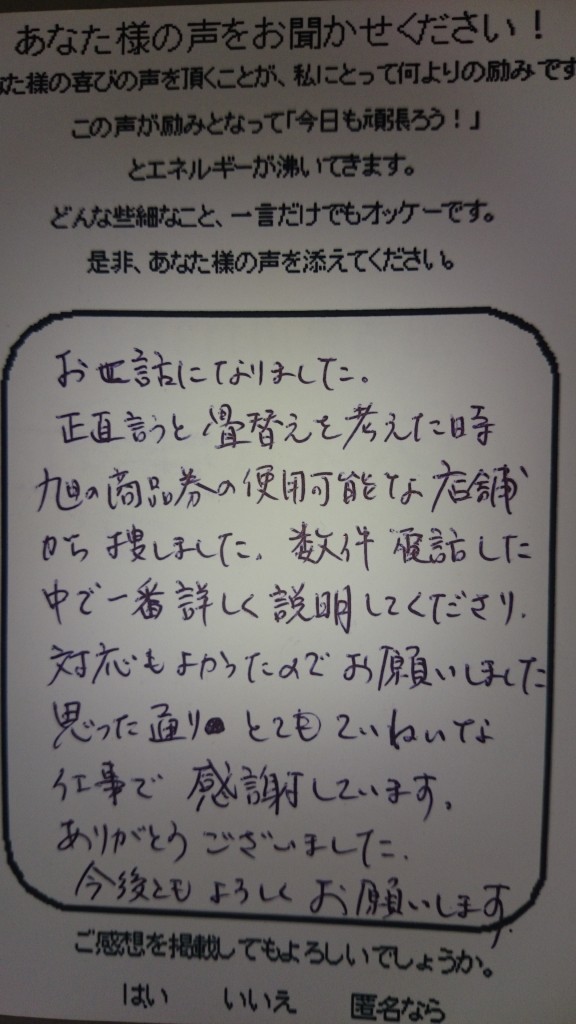 あなた様の声をお聞かせください！
た様の喜びの声を頂くことが、私にとって何よりの励みです
この声が励みとなって「今日も頑張ろう！」
とエネルギーが沸いてきます。
どんな些細なこと、一言だけでもオッケーです。
是非、あなた様の声を添えてください。
お世話になりました。
正直言うと畳替えを考えた時
旭の商品券の使用可能な店舗
から捜しました。数件電話した
中で一番詳しく説明してくださり、
対応もよかったのでお願いしました
思った通りとてもていねいな
仕事で感謝しています。
ありがとうございました。
今後ともよろしくお願いします。
ご感想を掲載してもよろしいでしょうか。
はい　いいえ　匿名なら